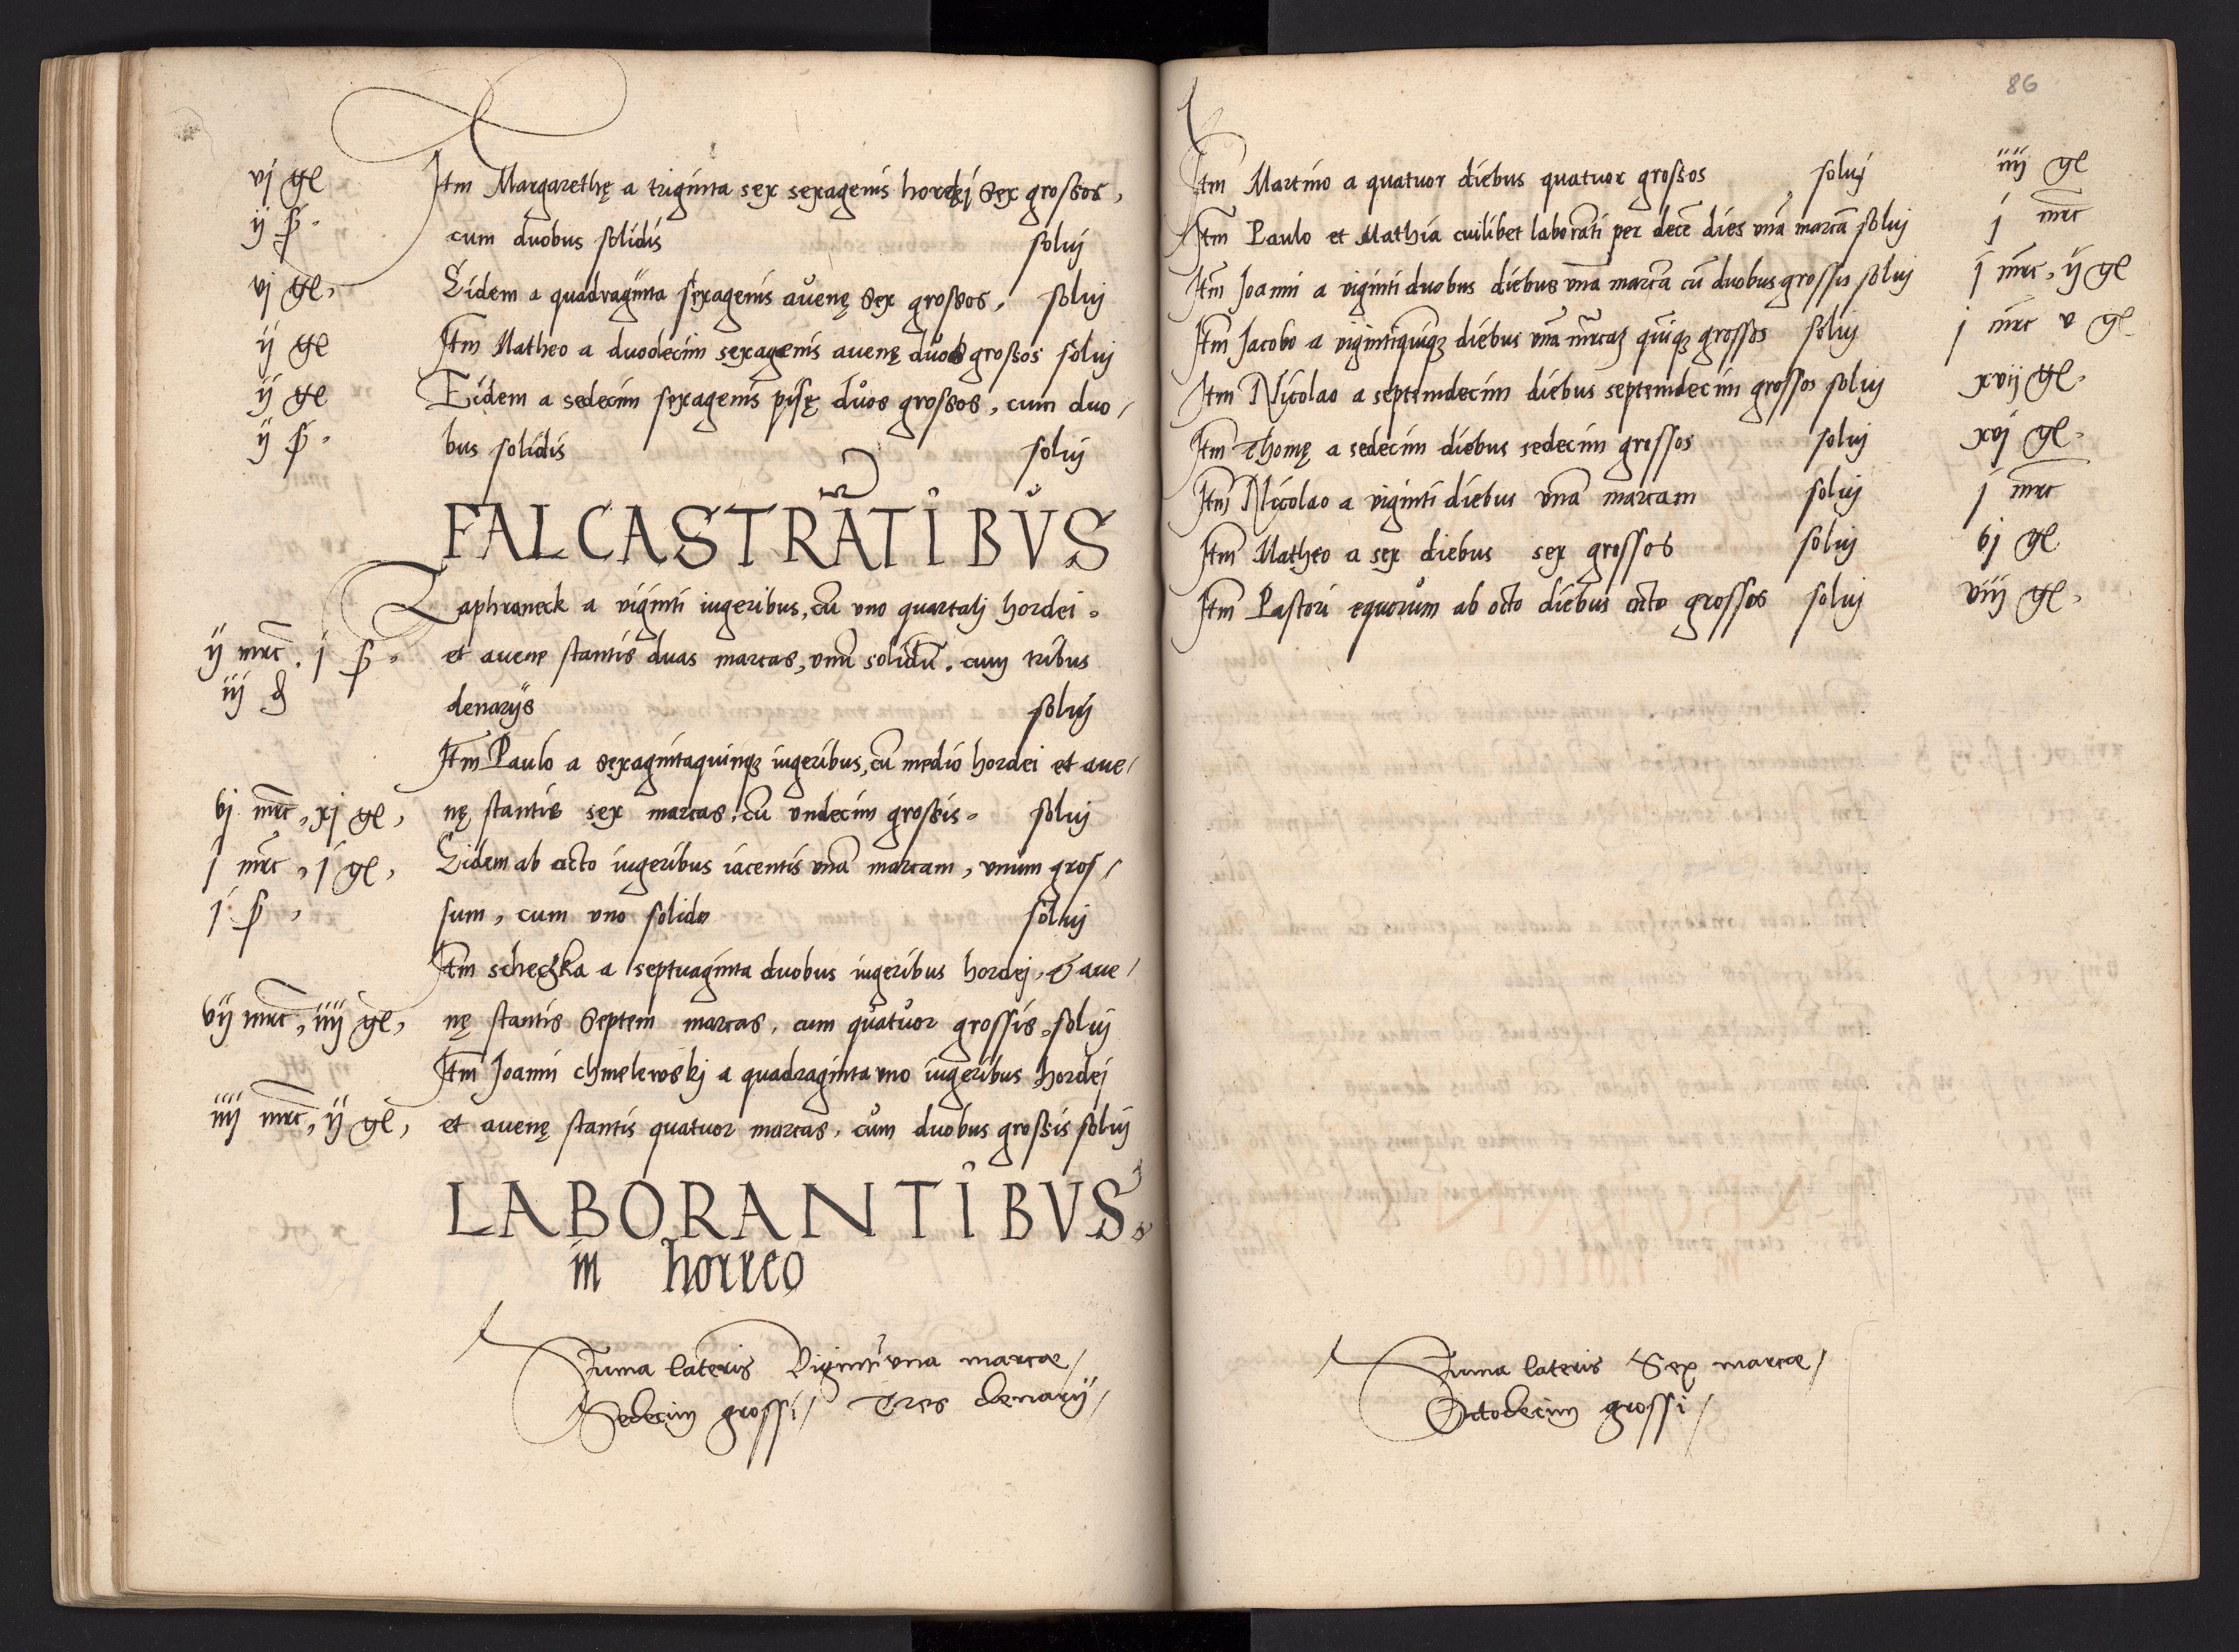 vj gł Itm Margarethę a triginta sex sexagenis hordej Sex grossos,
ij ß. cum duobus solidis soluj
vj gł, Eidem a quadraginta sexagenis auenę Sex grossos, soluj
ij gł Itm Matheo a duodecim sexagenis auenę duos grossos soluj
ij gł Eidem a sedecim sexagenis pisę duos grossos, cum duo/
ij ß. bus solidis soluj
FALCASTRATIBVS
Zaphraneck a viginti iugeribus, cū vno quartalj hordei.
ij mrc. j ß. et auene stantis duas marcas, vnū solidū. cum tribus
iij đ denarijs soluj
Itm Paulo a sexagintaquinqȝ iugeribus, cū medio hordei et aue/
vj mrc, xj gł, nę stantis sex marcas, cū vndecim grossis. soluj
j mrc, j gł, Eidem ab octo iugeribus iacentis vnā marcam, vnum gros/
j ß, sum, cum vno solido soluj
Itm scheczka a septuaginta duobus iugeribus hordej, & aue/
vij mrc, iiij gł, nę stantis Septem marcas, cum quatuor grossis. soluj
Itm Joanni chmelewskj a quadraginta vno iugeribus hordej
iiij mrc, ij gł, et auenę stantis quatuor marcas, cum duobus grossis soluj
LABORANTIBVS
in horreo
Suma lateris Vigintivna marcae/
Sedecim grossi/ Tres denarij/
86
Itm Martino a quatuor diebus quatuor grossos soluj iiij gł
Itm Paulo et Mathia cuilibet laborāti per decē dies vnā marcā soluj j mrc
Itm Joanni a viginti duobus diebus vnā marcā cū duobus grossis soluj j mrc, ij gł
Itm Jacobo a vigintiquinqȝ diebus vnā mrcaȝ quīqȝ grossos soluj j mrc v gł
Itm Nicolao a septemdecim diebus septemdecim grossos soluj xvij gł.
Itm Thomę a sedecim diebus sedecim grossos soluj xvj gł.
Itm Nicolao a viginti diebus vnā marcam soluj j mrc
Itm Matheo a sex diebus sex grossos soluj vj gł
Itm Pastori equorum ab octo diebus octo grossos soluj viij gł,
Suma lateris Sex marcae/
Octodecim grossi/